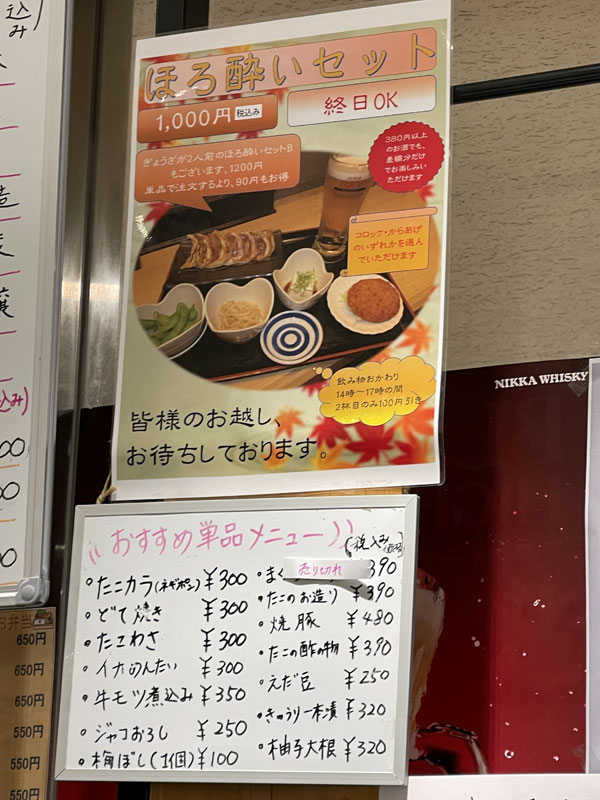 ほろ酔いセット
1,000円 税込み
終日OK
ぎょうざが2人前のほろ酔いセットB
もございます。1200円
単品で注文するより、90円もお得
380円以上
のお酒でも、
差額分だけ
でお楽しみい
ただけます
コロッケ・からあげ
のいずれかを選ん
でいただけます
飲み物おかわり
14時～17時の間
2杯目のみ100円引き
皆様のお越し、
お待ちしております。
NIKKA WHISKY
おすすめ単品メニュー
(税込み価格)
・たこカラ(ネギポン) ¥300
・どて焼き ¥300
・たこわさ ¥300
・イカめんたい ¥300
・牛モツ煮込み ¥350
・ジャコおろし ¥250
・梅ぼし(1個) ¥100
・まぐ 売り切れ 390
・たこのお造り ¥390
・焼豚 ¥480
・たこの酢の物 ¥390
・えだ豆 ¥250
・きゅうり一本漬 ¥320
・柚子大根 ¥320
込み)
お弁当
650円
650円
650円
550円
550円
550円